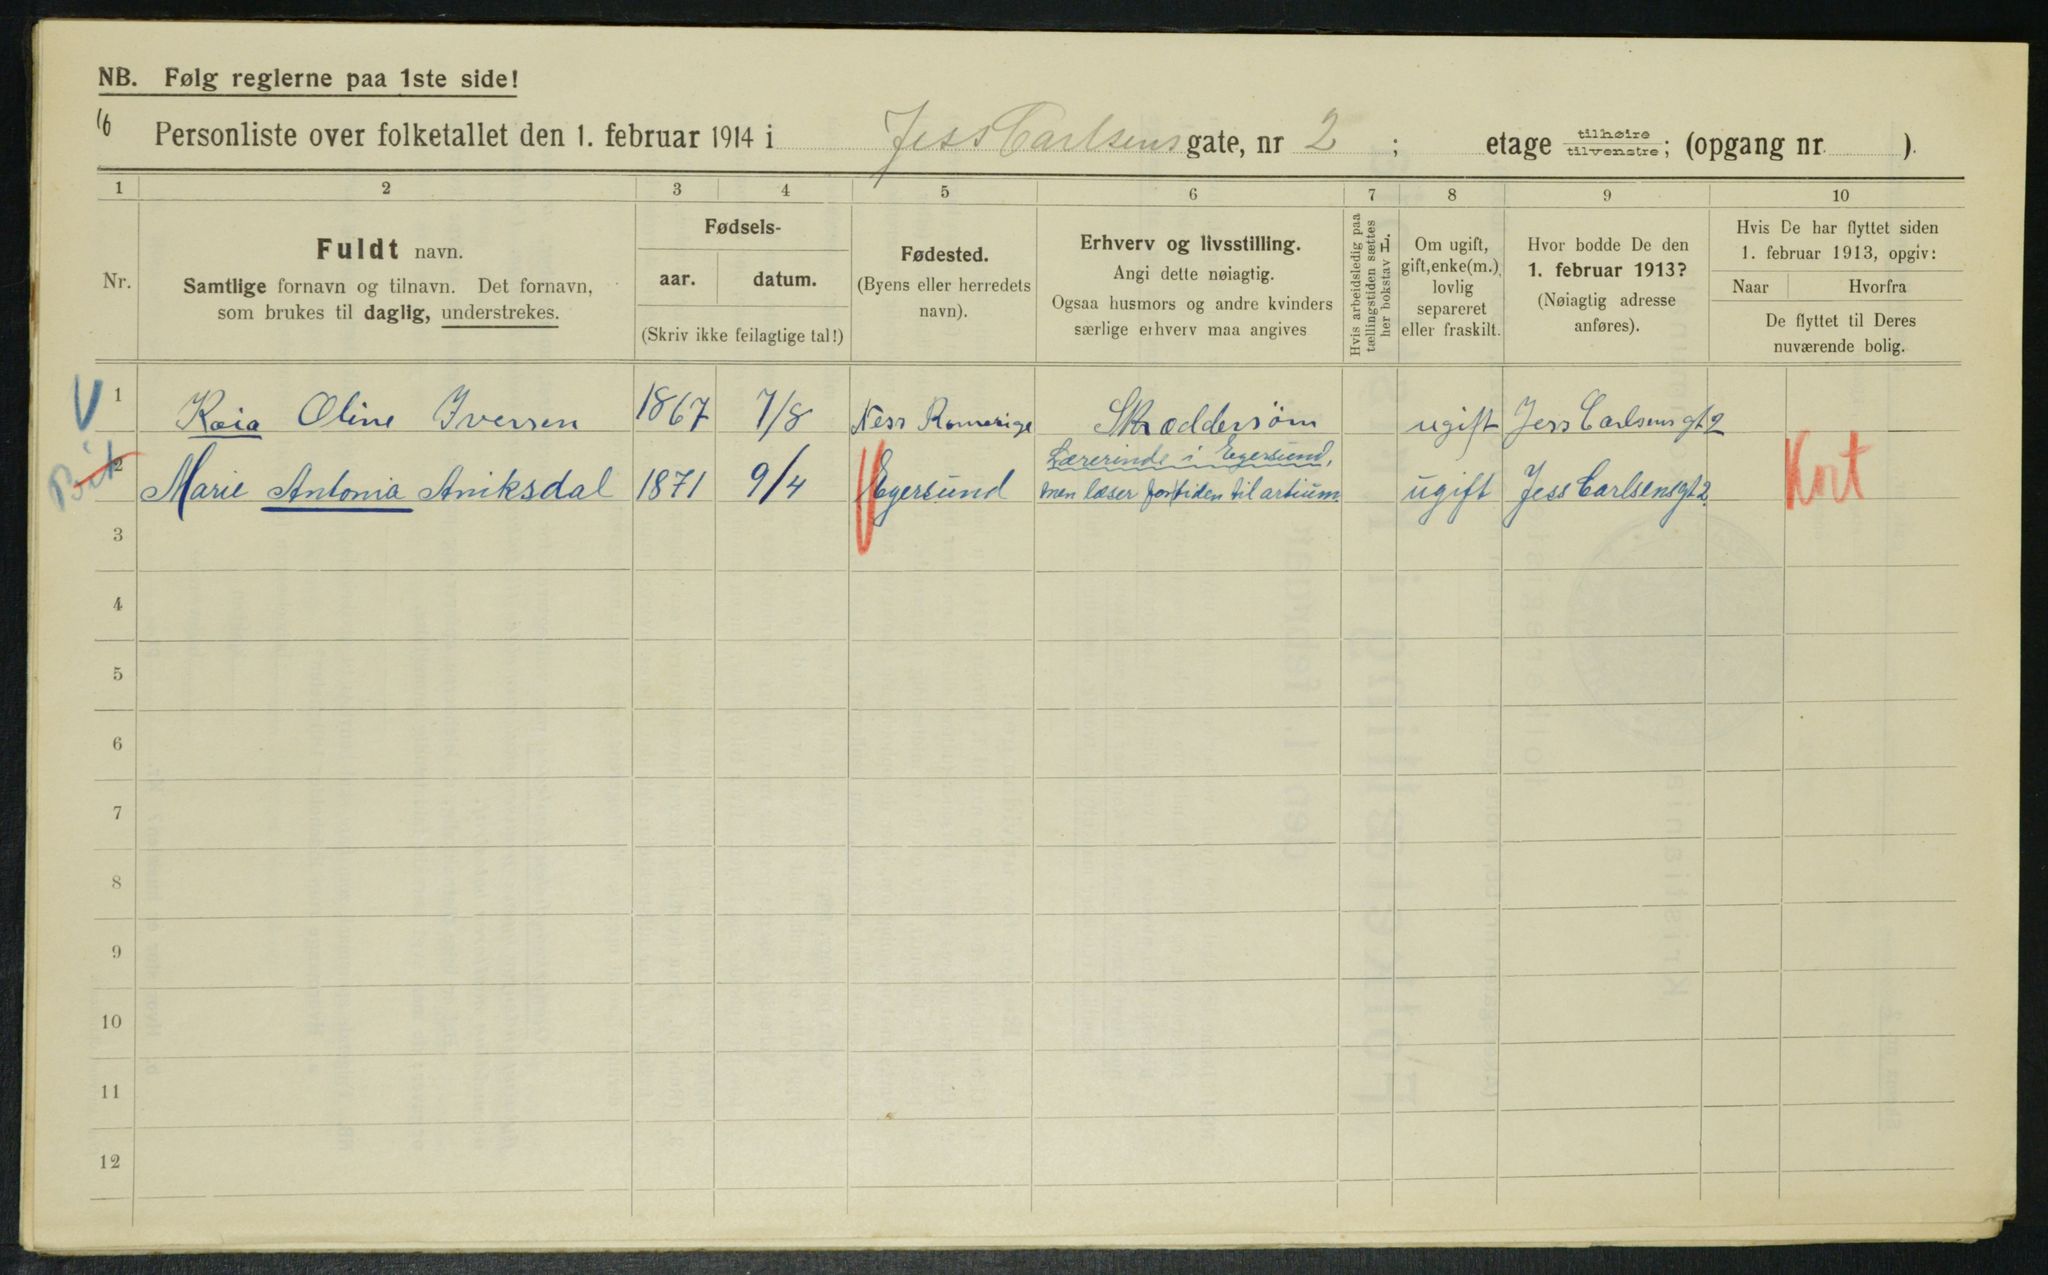 NB. Følg reglerne paa 1ste side!
16 Personliste over folketallet den 1. februar 1914 i Jess Carlsens gate, nr 2 ; etage tilhøire tilvenstre; (opgang nr. ).
1 2 3 4 5 6 7 8 9 10
Nr.
Fuldt navn.
Samtlige fornavn og tilnavn. Det fornavn,
som brukes til daglig, understrekes.
Fødsels-
aar. datum.
(Skriv ikke feilagtige tal!)
Fødested.
(Byens eller herredets
navn).
Erhverv og livsstilling.
Angi dette nøiagtig.
Ogsaa husmors og andre kvinders
særlige erhverv maa angives
Hvis arbeidsledig paa
tællingstiden sættes
her bokstav L.
Om ugift,
gift, enke(m.),
lovlig
separeret
eller fraskilt.
Hvor bodde De den
1. februar 1913?
(Nøiagtig adresse
anføres).
Hvis De har flyttet siden
1. februar 1913, opgiv:
Naar Hvorfra
De flyttet til Deres
nuværende bolig.
1 Kaia Oline Iversen 1867 7/8 Ness Romerige Skræddersøm ugift Jess Carlsens gt 2
2 Marie Antonia Aniksdal 1871 9/4 Egersund Lærerinde i Egersund, ugift Jess Carlsens gt 2. Kort
men læser for tiden til artium.
3
4
5
6
7
8
9
10
11
12